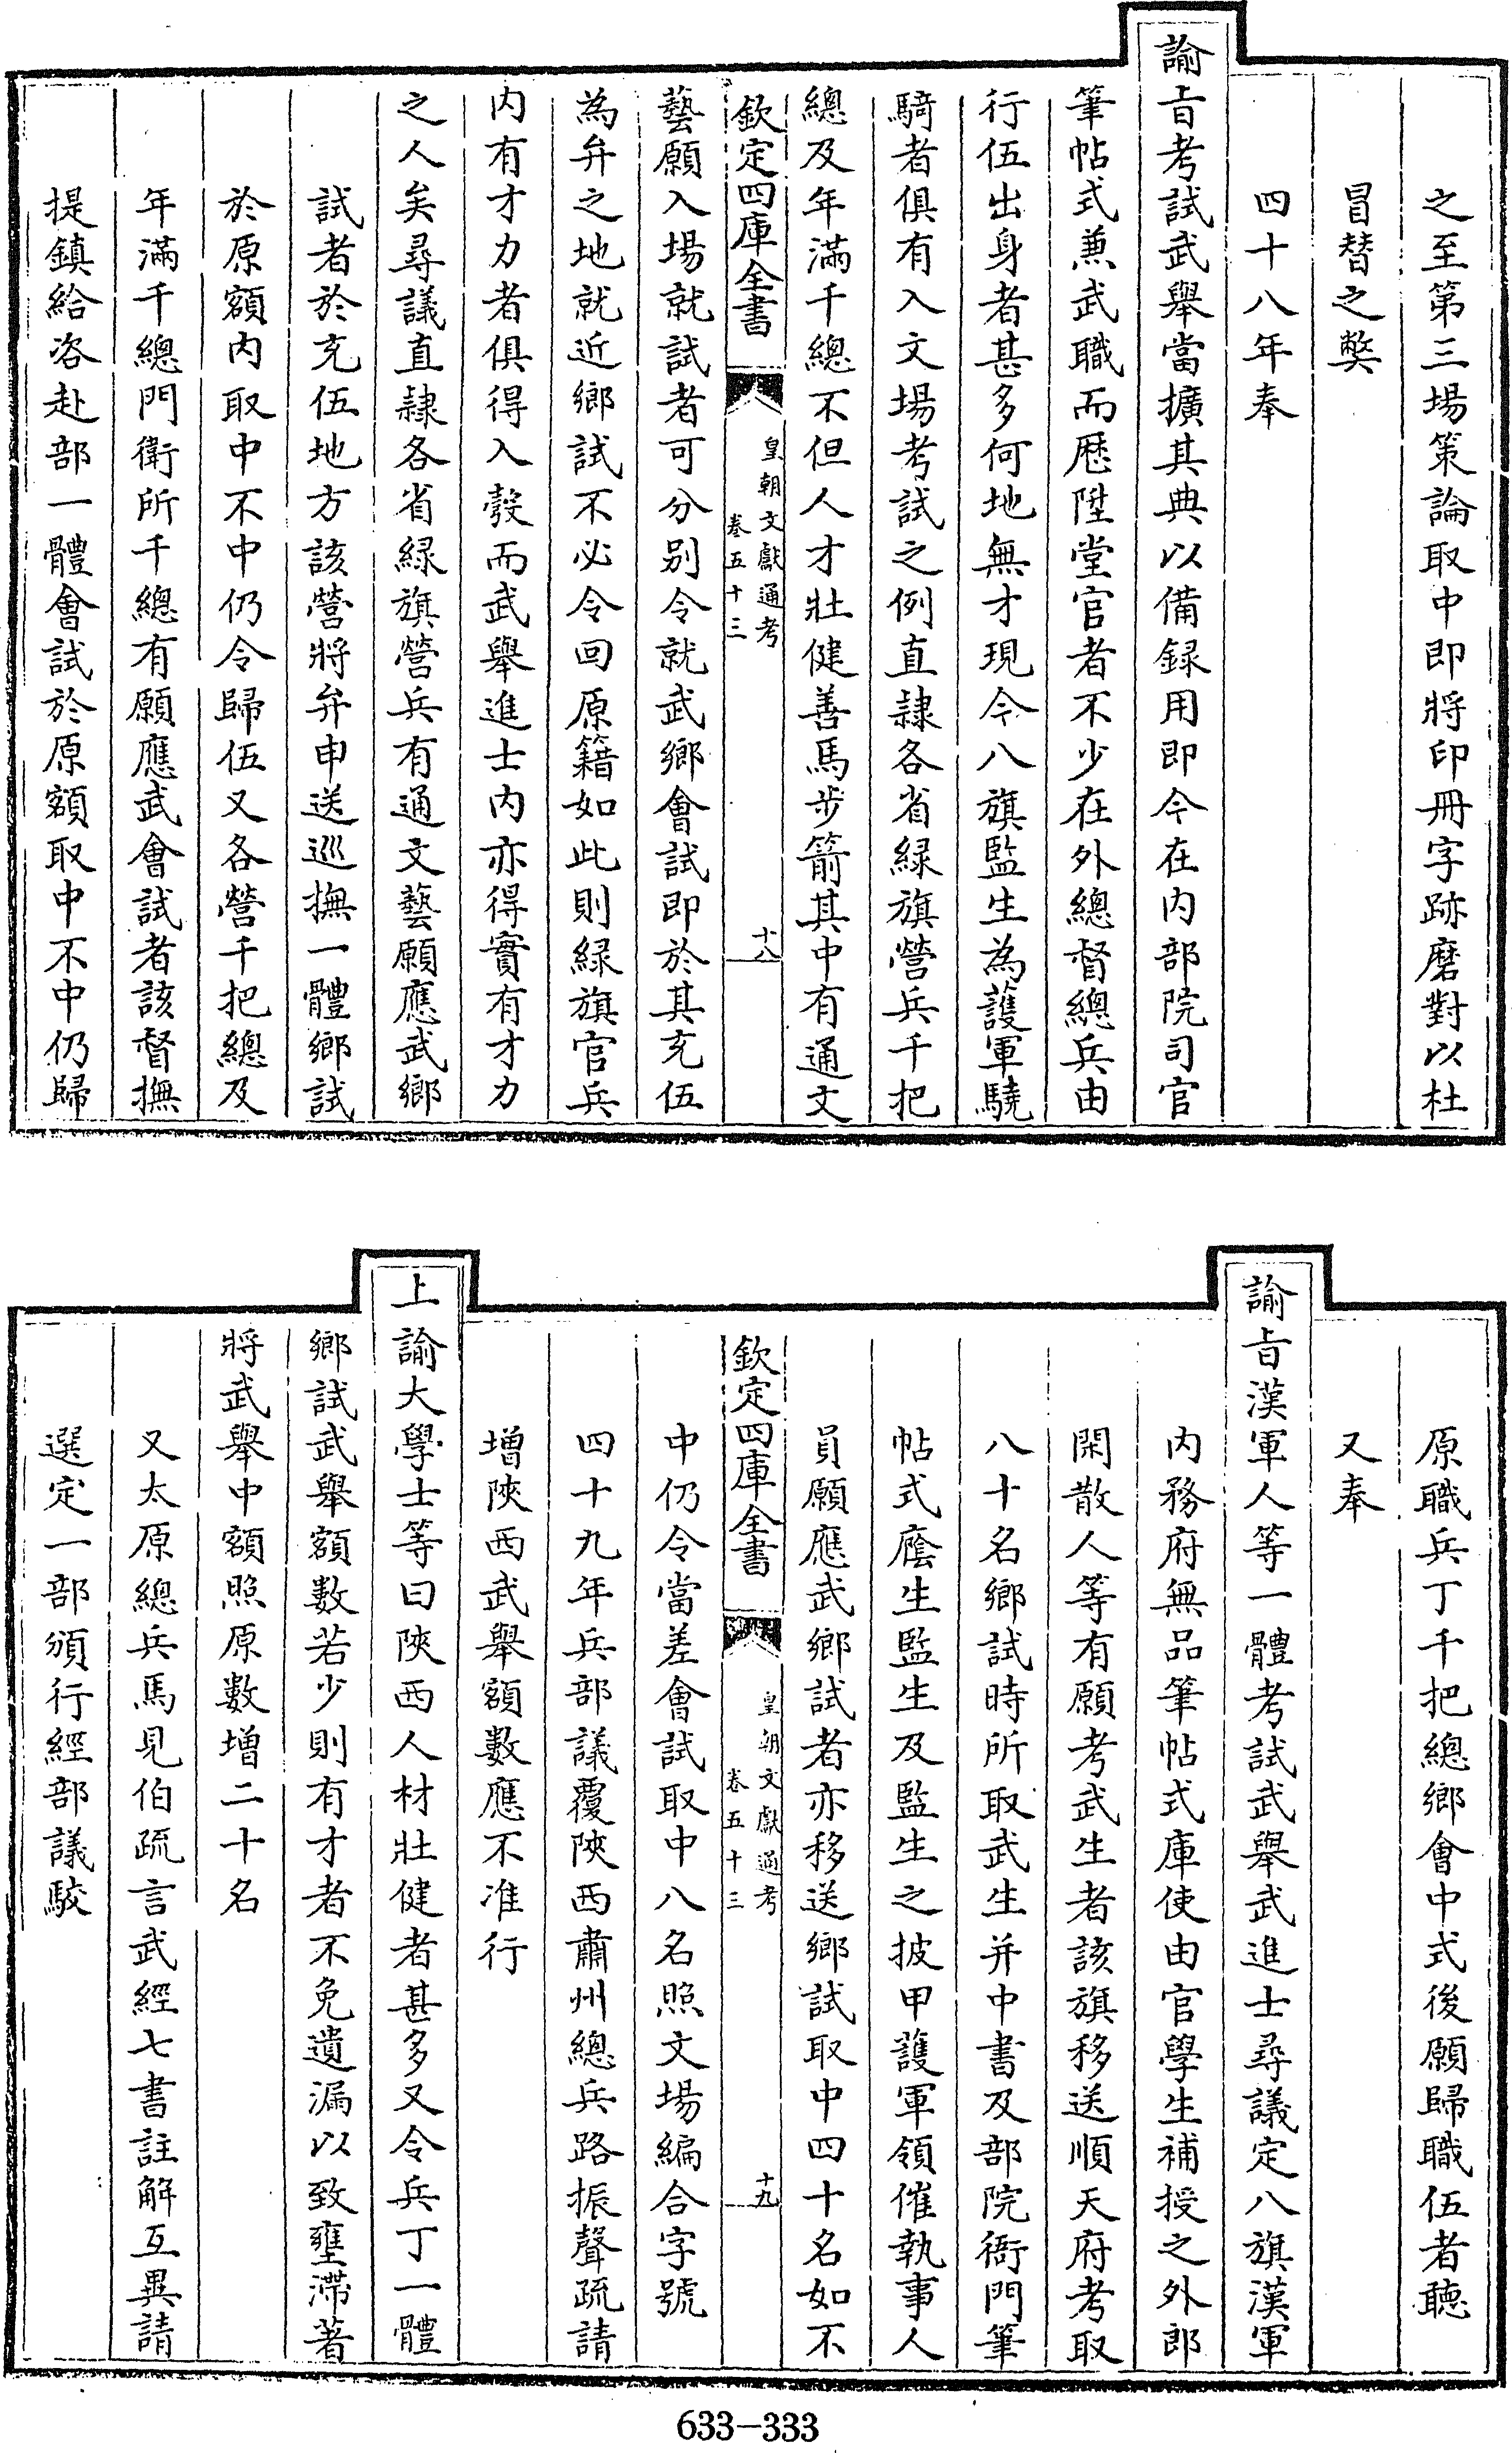 之至第三場策論取中即將印冊字跡磨對以杜
冒替之獘
四十八年奉
諭旨考試武舉當擴其典以備録用即今在内部院司官
筆帖式兼武職而歴陞堂官者不少在外總督總兵由
行伍出身者甚多何地無才現今八旗監生為護軍驍
騎者俱有入文場考試之例直隷各省緑旗營兵千把
總及年滿千總不但人才壯健善馬步箭其中有通文
欽定四庫全書
皇朝文獻通考
卷五十三
十八
藝願入場就試者可分别令就武鄉會試即於其充伍
為弁之地就近鄉試不必令回原籍如此則緑旗官兵
内有才力者俱得入彀而武舉進士内亦得實有才力
之人矣尋議直隷各省緑旗營兵有通文藝願應武鄉
試者於充伍地方該營將弁申送巡撫一體鄉試
於原額内取中不中仍令歸伍又各營千把總及
年滿千總門衛所千總有願應武會試者該督撫
提鎮給咨赴部一體會試於原額取中不中仍歸
原職兵丁千把總鄉會中式後願歸職伍者聽
又奉
諭旨漢軍人等一體考試武舉武進士尋議定八旗漢軍
内務府無品筆帖式庫使由官學生補授之外郎
閑散人等有願考武生者該旗移送順天府考取
八十名鄉試時所取武生并中書及部院衙門筆
帖式廕生監生及監生之披甲護軍領催執事人
員願應武鄉試者亦移送鄉試取中四十名如不
欽定四庫全書
皇朝文獻通考
卷五十三
十九
中仍令當差會試取中八名照文場編合字號
四十九年兵部議覆陜西肅州總兵路振聲疏請
增陜西武舉額數應不准行
上諭大學士等曰陜西人材壯健者甚多又令兵丁一體
鄉試武舉額數若少則有才者不免遺漏以致壅滯著
將武舉中額照原數增二十名
又太原總兵馬見伯疏言武經七書註解互異請
選定一部頒行經部議駁
633-333